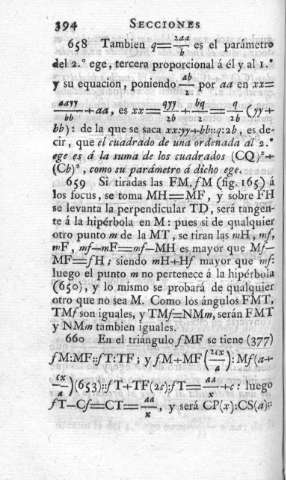 394 SECCIONES
658 Tambien q=2aa/b es el parámetro
del 2.º ege, tercera proporcional á él y al 1.º
y su equacion, poniendo ab/2 por aa en xx=
aayy/bb+aa, es xx=qyy/2b+bq/2=q/2b(yy+
bb): de la que se saca xx:yy+bb::q:2b, es de-
cir, que el cuadrado de una ordenada al 2.º
ege es á la suma de los cuadrados (CQ)²+
(Cb)², como su parámetro á dicho ege.
659 Si tiradas las FM, fM (fig. 165) á
los focus, se toma MH=MF, y sobre FH
se levanta la perpendicular TD, será tangen-
te á la hipérbola en M: pues si de qualquier
otro punto m de la MT, se tiran las mH, mf,
mF, mf—mF=mf—MH es mayor que Mf—
MF=fH; siendo mH+Hf mayor que mf:
luego el punto m no pertenece á la hipérbola
(650), y lo mismo se probará de qualquier
otro que no sea M. Como los ángulos FMT,
TMf son iguales, y TMf=NMm, serán FMT
y NMm tambien iguales.
660 En el triangulo fMF se tiene (377)
fM:MF::fT:TF; y fM+MF(2cx/a):Mf(a+
cx/a)(653)::fT+TF(2c):fT=aa/x+c: luego
fT—Cf=CT=aa/x, y será CP(x):CS(a)::